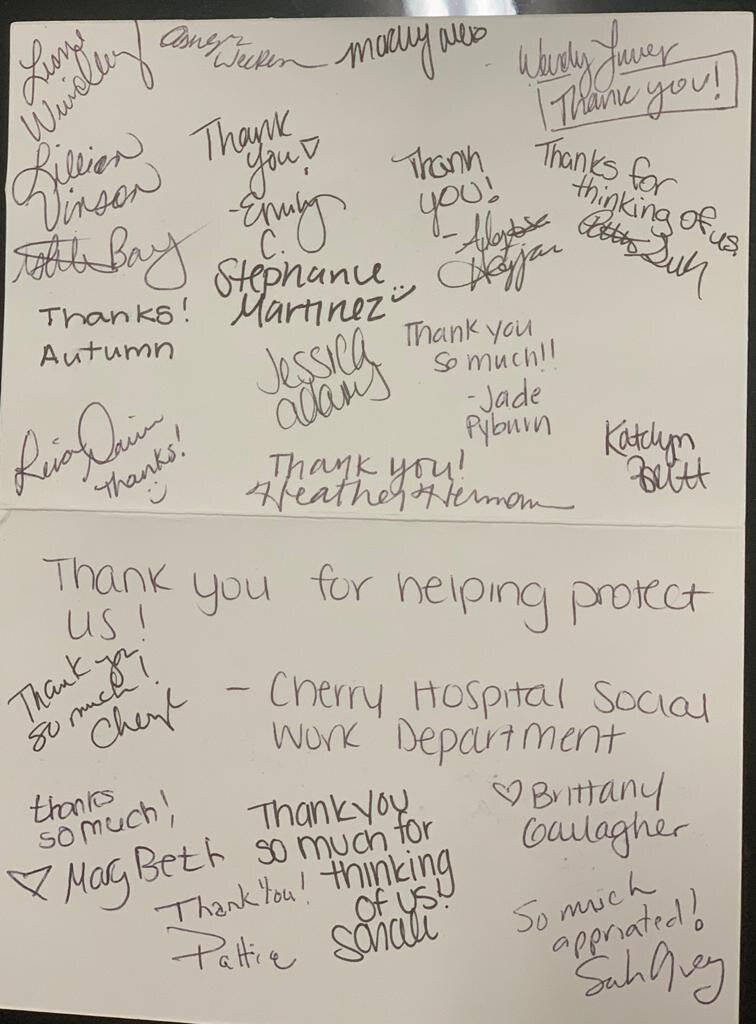 Windley
Wendy
Thank you!
Lillian
Vinson
Thank
you!
- Emily
C.
Thank
you!
Thanks for
thinking of us
Bay
Stephanie
Martinez
Thanks!
Autumn
Jessica
Adams
Thank you
so much!!
- Jade
Pyburn
Thanks!
Katelyn
Britt
Thank you!
Heather Herman
Thank you for helping protect
us!
Thank you
so much!
Cheryl
- Cherry Hospital Social
Work Department
thanks
so much!
♡ Mary Beth
Thank you
so much for
thinking
of us!
Sonali
♡ Brittany
Gallagher
Thank You!
Pattie
So much
appriated!